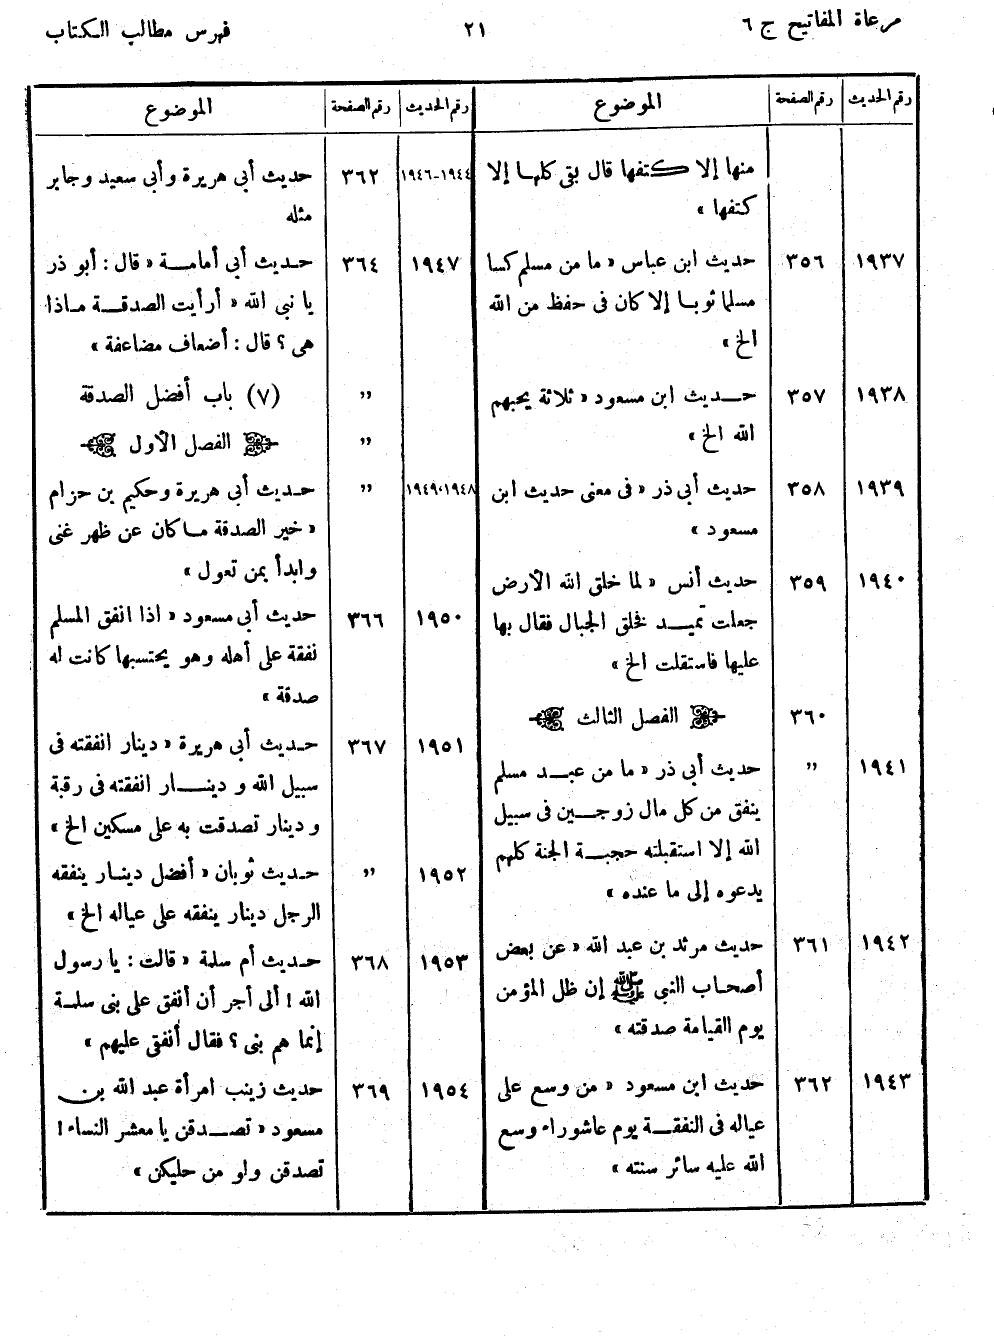 مرعاة المفاتيح ج ٦
٢١
فهرس مطالب الكتاب
رقم الحديث رقم الصفحة الموضوع
منها إلا كتفها قال بقى كلها إلا
كتفها »
١٩٣٧ ٣٥٦ حديث ابن عباس « ما من مسلم كسا
مسلما ثوبا إلا كان فى حفظ من الله
الخ »
١٩٣٨ ٣٥٧ حديث ابن مسعود « ثلاثة يحبهم
الله الخ »
١٩٣٩ ٣٥٨ حديث أبي ذر « فى معنى حديث ابن
مسعود »
١٩٤٠ ٣٥٩ حديث أنس « لما خلق الله الأرض
جعلت تميد فخلق الجبال فقال بها
عليها فاستقلت الخ »
٣٦٠ الفصل الثالث
١٩٤١ ,, حديث أبي ذر « ما من عبد مسلم
ينفق من كل مال زوجين فى سبيل
الله إلا استقبلته حجبة الجنة كلهم
يدعوه إلى ما عنده »
١٩٤٢ ٣٦١ حديث مرثد بن عبد الله « عن بعض
أصحاب النبي ﷺ إن ظل المؤمن
يوم القيامة صدقته »
١٩٤٣ ٣٦٢ حديث ابن مسعود « من وسع على
عياله فى النفقة يوم عاشوراء وسع
الله عليه سائر سنته »
رقم الحديث رقم الصفحة الموضوع
١٩٤٤-١٩٤٦ ٣٦٢ حديث أبي هريرة وأبي سعيد وجابر
مثله
١٩٤٧ ٣٦٤ حديث أبي أمامة « قال : أبو ذر
يا نبى الله « أرأيت الصدقة ماذا
هى ؟ قال : أضعاف مضاعفة »
,, (٧) باب أفضل الصدقة
,, الفصل الأول
١٩٤٨،١٩٤٩ ,, حديث أبي هريرة وحكيم بن حزام
« خير الصدقة ما كان عن ظهر غنى
وابدأ بمن تعول »
١٩٥٠ ٣٦٦ حديث أبي مسعود « اذا انفق المسلم
نفقة على أهله وهو يحتسبها كانت له
صدقة »
١٩٥١ ٣٦٧ حديث أبي هريرة « دينار انفقته فى
سبيل الله و دينار انفقته فى رقبة
و دينار تصدقت به على مسكين الخ »
١٩٥٢ ,, حديث ثوبان « أفضل دينار ينفقه
الرجل دينار ينفقه على عياله الخ »
١٩٥٣ ٣٦٨ حديث أم سلمة « قالت : يا رسول
الله ! ألى أجر أن أنفق على بنى سلمة
إنما هم بنى ؟ فقال أنفقى عليهم »
١٩٥٤ ٣٦٩ حديث زينب امرأة عبد الله بن
مسعود « تصدقن يا معشر النساء !
تصدقن ولو من حليكن »